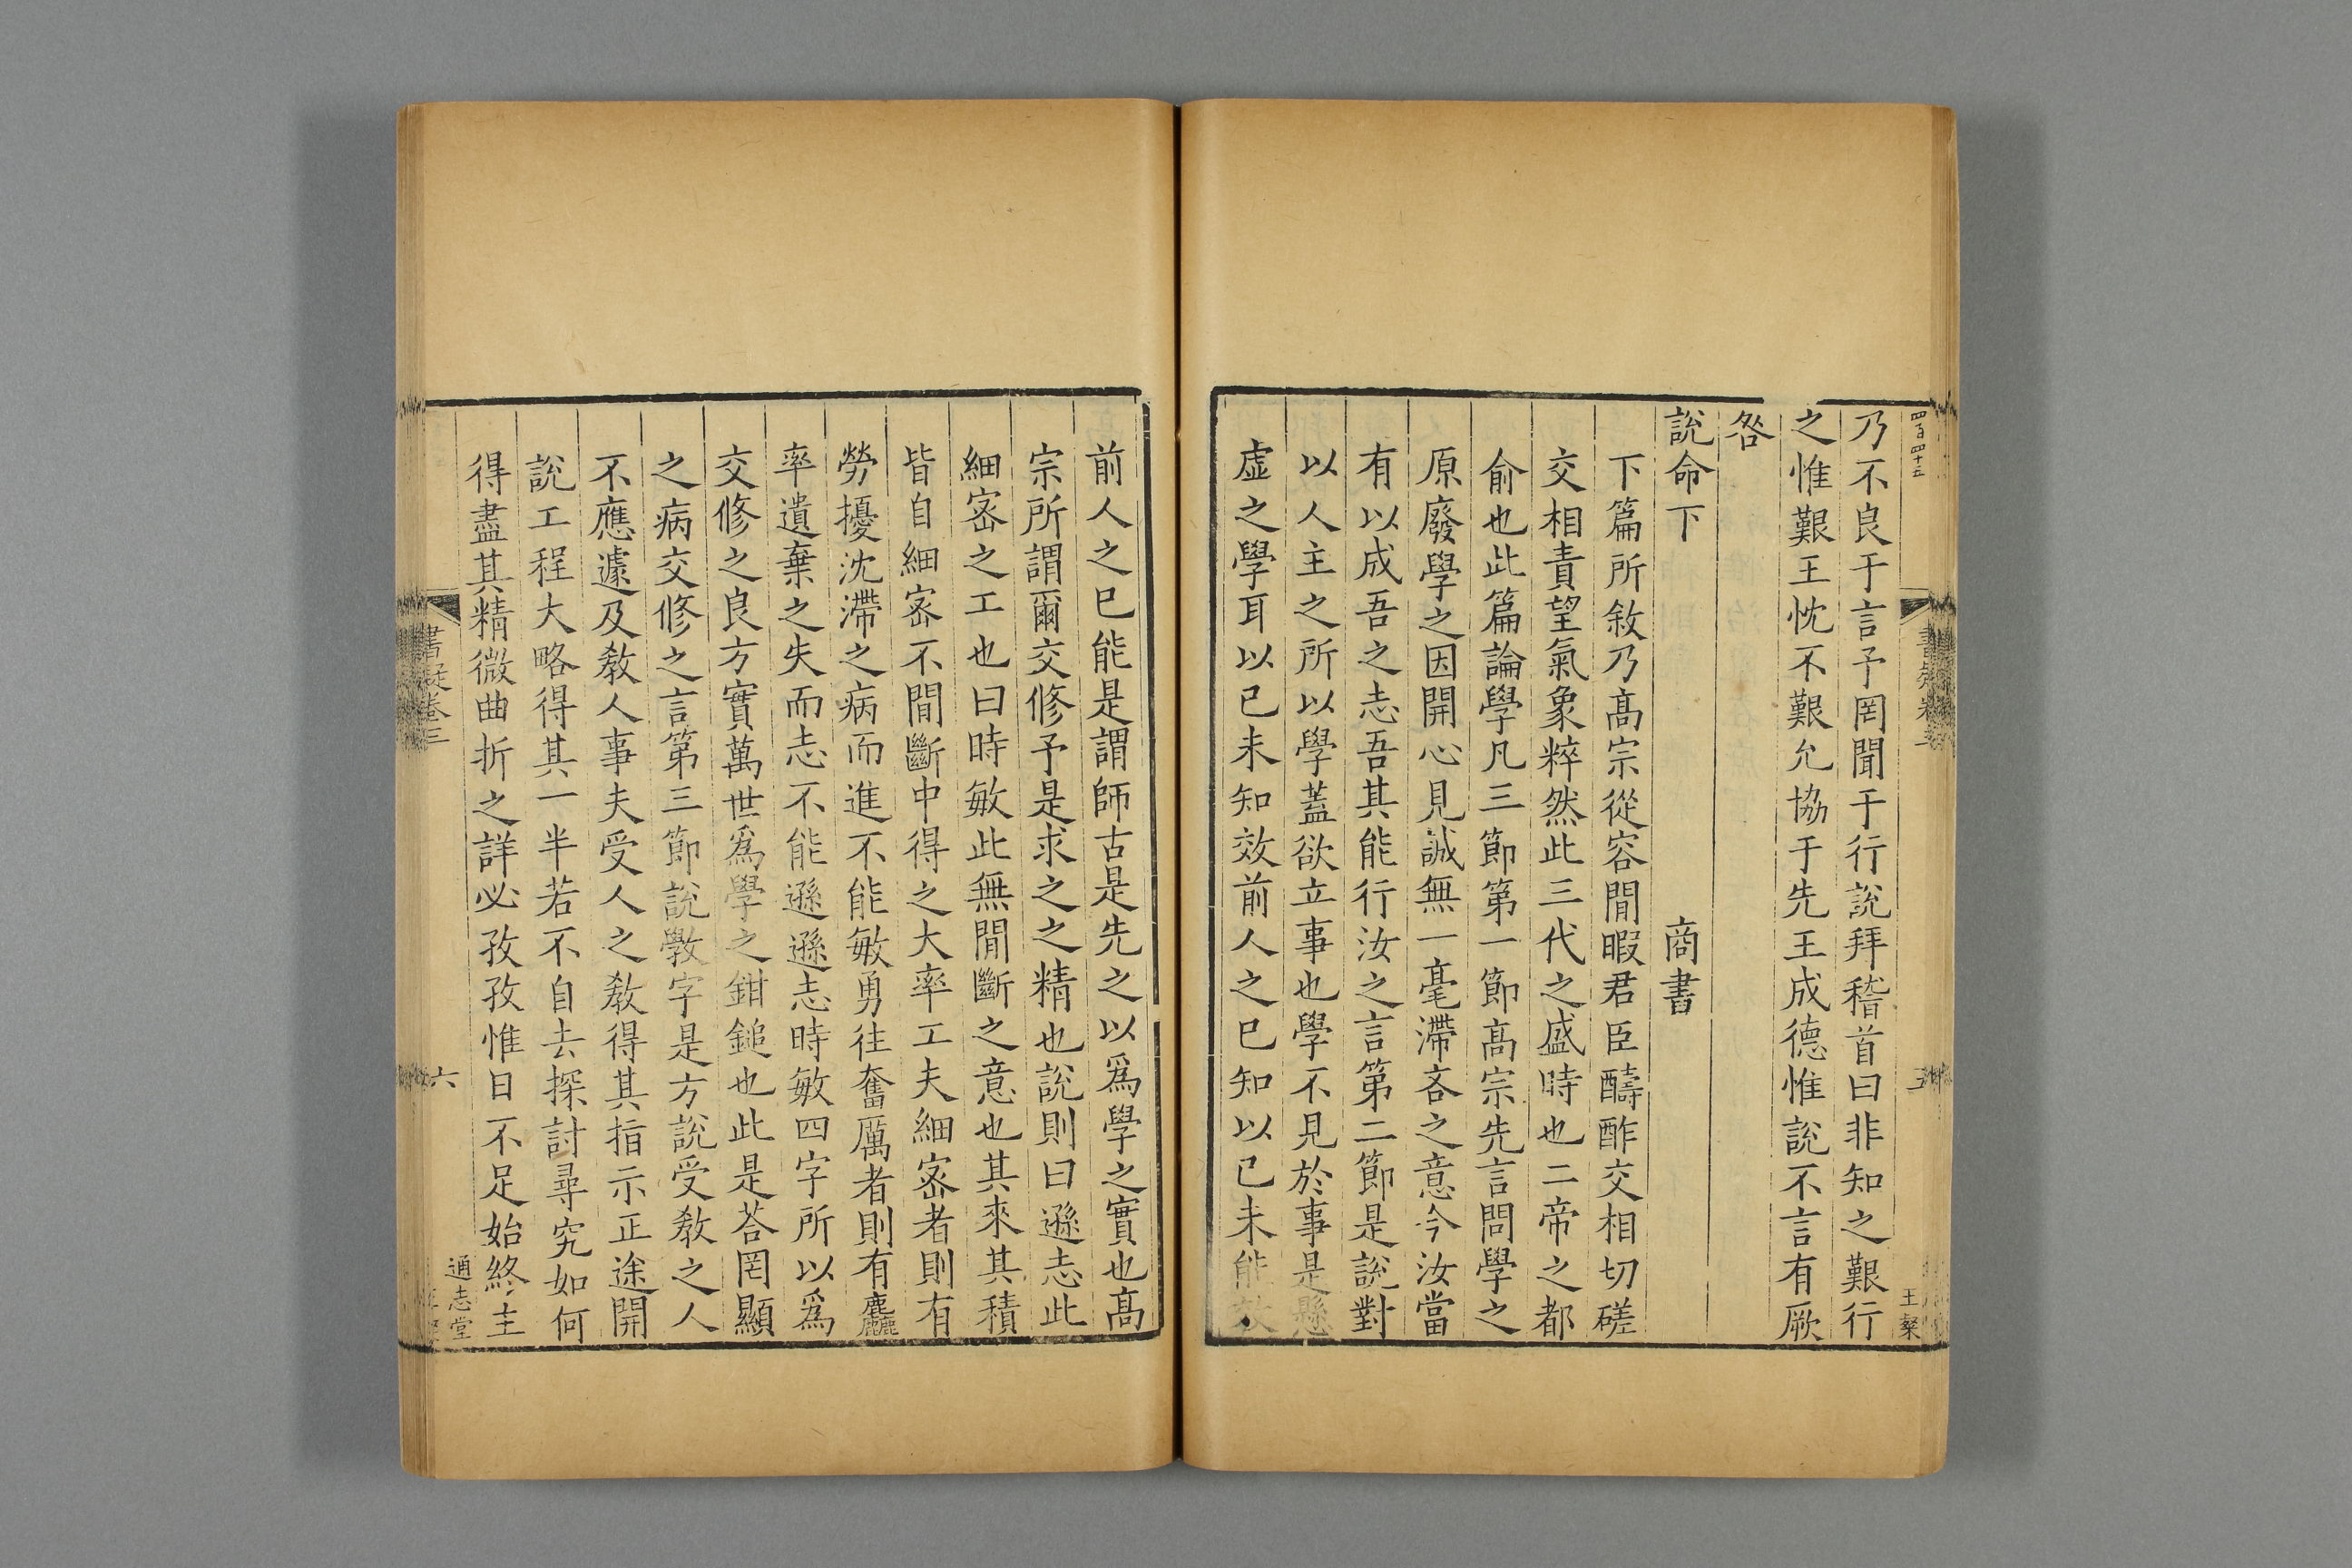 四百四十五
乃不良于言予罔聞于行說拜稽首曰非知之艱行
之惟艱王忱不艱允協于先王成德惟說不言有厥
咎
說命下 商書
下篇所敘乃髙宗從容閒暇君臣醻酢交相切磋
交相責望氣象粹然此三代之盛時也二帝之都
俞也此篇論學凡三節第一節髙宗先言問學之
原廢學之因開心見誠無一毫滯吝之意今汝當
有以成吾之志吾其能行汝之言第二節是說對
以人主之所以學蓋欲立事也學不見於事是懸
虛之學耳以已未知效前人之已知以已未能效
書疑卷三
五
王粲
前人之已能是謂師古是先之以爲學之實也髙
宗所謂爾交修予是求之之精也說則曰遜志此
細宻之工也曰時敏此無閒斷之意也其來其積
皆自細宻不間斷中得之大率工夫細宻者則有
勞擾沈滯之病而進不能敏勇往奮厲者則有麤
率遺棄之失而志不能遜遜志時敏四字所以爲
交修之良方實萬世爲學之鉗鎚也此是荅罔顯
之病交修之言第三節說斆字是方說受教之人
不應遽及教人事夫受人之教得其指示正途開
說工程大略得其一半若不自去探討尋究如何
得盡其精微曲折之詳必孜孜惟日不足始終主
書疑卷三
六
通志堂